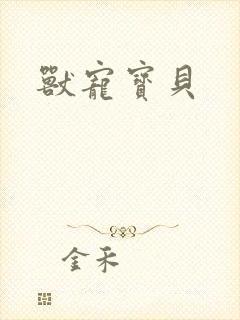 獸寵寶貝
金禾